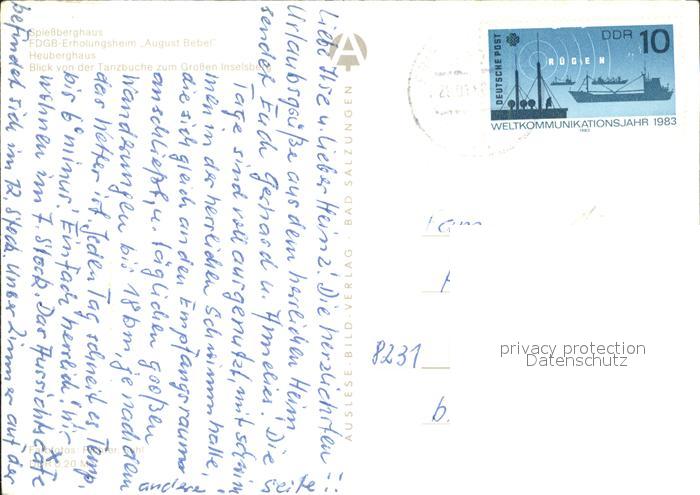 Spießberghaus
FDGB-Erholungsheim „August Bebel"
Heuberghaus
Blick von der Tanzbuche zum Großen Inselsberg
DEUTSCHE POST
DDR 10
RÜGEN
WELTKOMMUNIKATIONSJAHR 1983
1983
AUSLESE-BILD-VERLAG · BAD SALZUNGEN
Liebe Ilse u. Lieber Heinz! Die herzlichsten
Urlaubsgrüße aus dem herrlichen Heim
sendet Euch Gerhard u. Annelies. Die
Tage sind voll ausgenutzt, mit schwim
men in der herrlichen Schwimmhalle,
die sich gleich an den Empfangsraum
anschließt, u. täglichen großen
Wanderungen bis 18 km, je nachdem
das Wetter ist. Jeden Tag schneit es Temp.
bis 6° minus. Einfach herrlich! Wir
wohnen im 7. Stock. Das Aussichtskafe
befindet sich im 12. Stock. Unser Zimmer auf der
andere Seite!!
Fam.
8231
privacy protection
Datenschutz